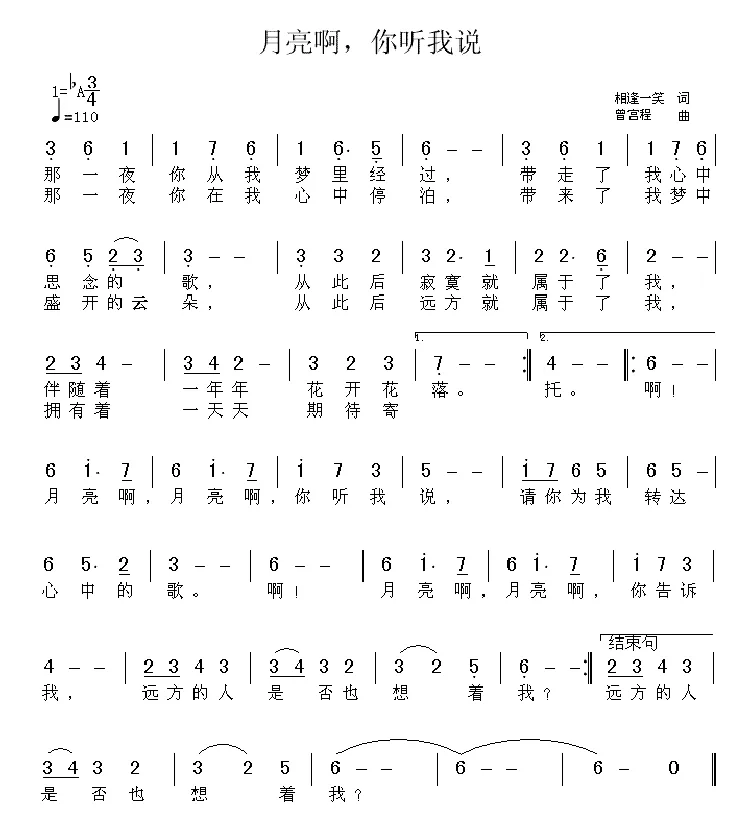 月亮啊，你听我说
1=♭A 3/4
相逢一笑 词
♩=110
曾宫程 曲
3 6 1 | 1 7 6 | 1 6· 5 | 6 - - | 3 6 1 | 1 7 6 |
那一夜 你从我 梦里经 过， 带走了 我心中
那一夜 你在我 心中停 泊， 带来了 我梦中
6 5 2 3 | 3 - - | 3 3 2 | 3 2· 1 | 2 2· 6 | 2 - - |
思念的 歌， 从此后 寂寞就 属于了 我，
盛开的云 朵， 从此后 远方就 属于了 我，
1. 2.
2 3 4 - | 3 4 2 - | 3 2 3 | 7 - - :| 4 - - |: 6 - - |
伴随着 一年年 花开花 落。 托。 啊！
拥有着 一天天 期待寄
6 i· 7 | 6 i· 7 | i 7 3 | 5 - - | i 7 6 5 | 6 5 - |
月亮啊，月亮啊，你听我 说， 请你为我 转达
6 5· 2 | 3 - - | 6 - - | 6 i· 7 | 6 i· 7 | i 7 3 |
心中的 歌。 啊！ 月亮啊，月亮啊，你告诉
结束句
4 - - | 2 3 4 3 | 3 4 3 2 | 3 2 5 | 6 - - :| 2 3 4 3 |
我， 远方的人 是否也 想着 我？ 远方的人
3 4 3 2 | 3 2 5 | 6 - - | 6 - - | 6 - 0 ‖
是否也 想着 我？